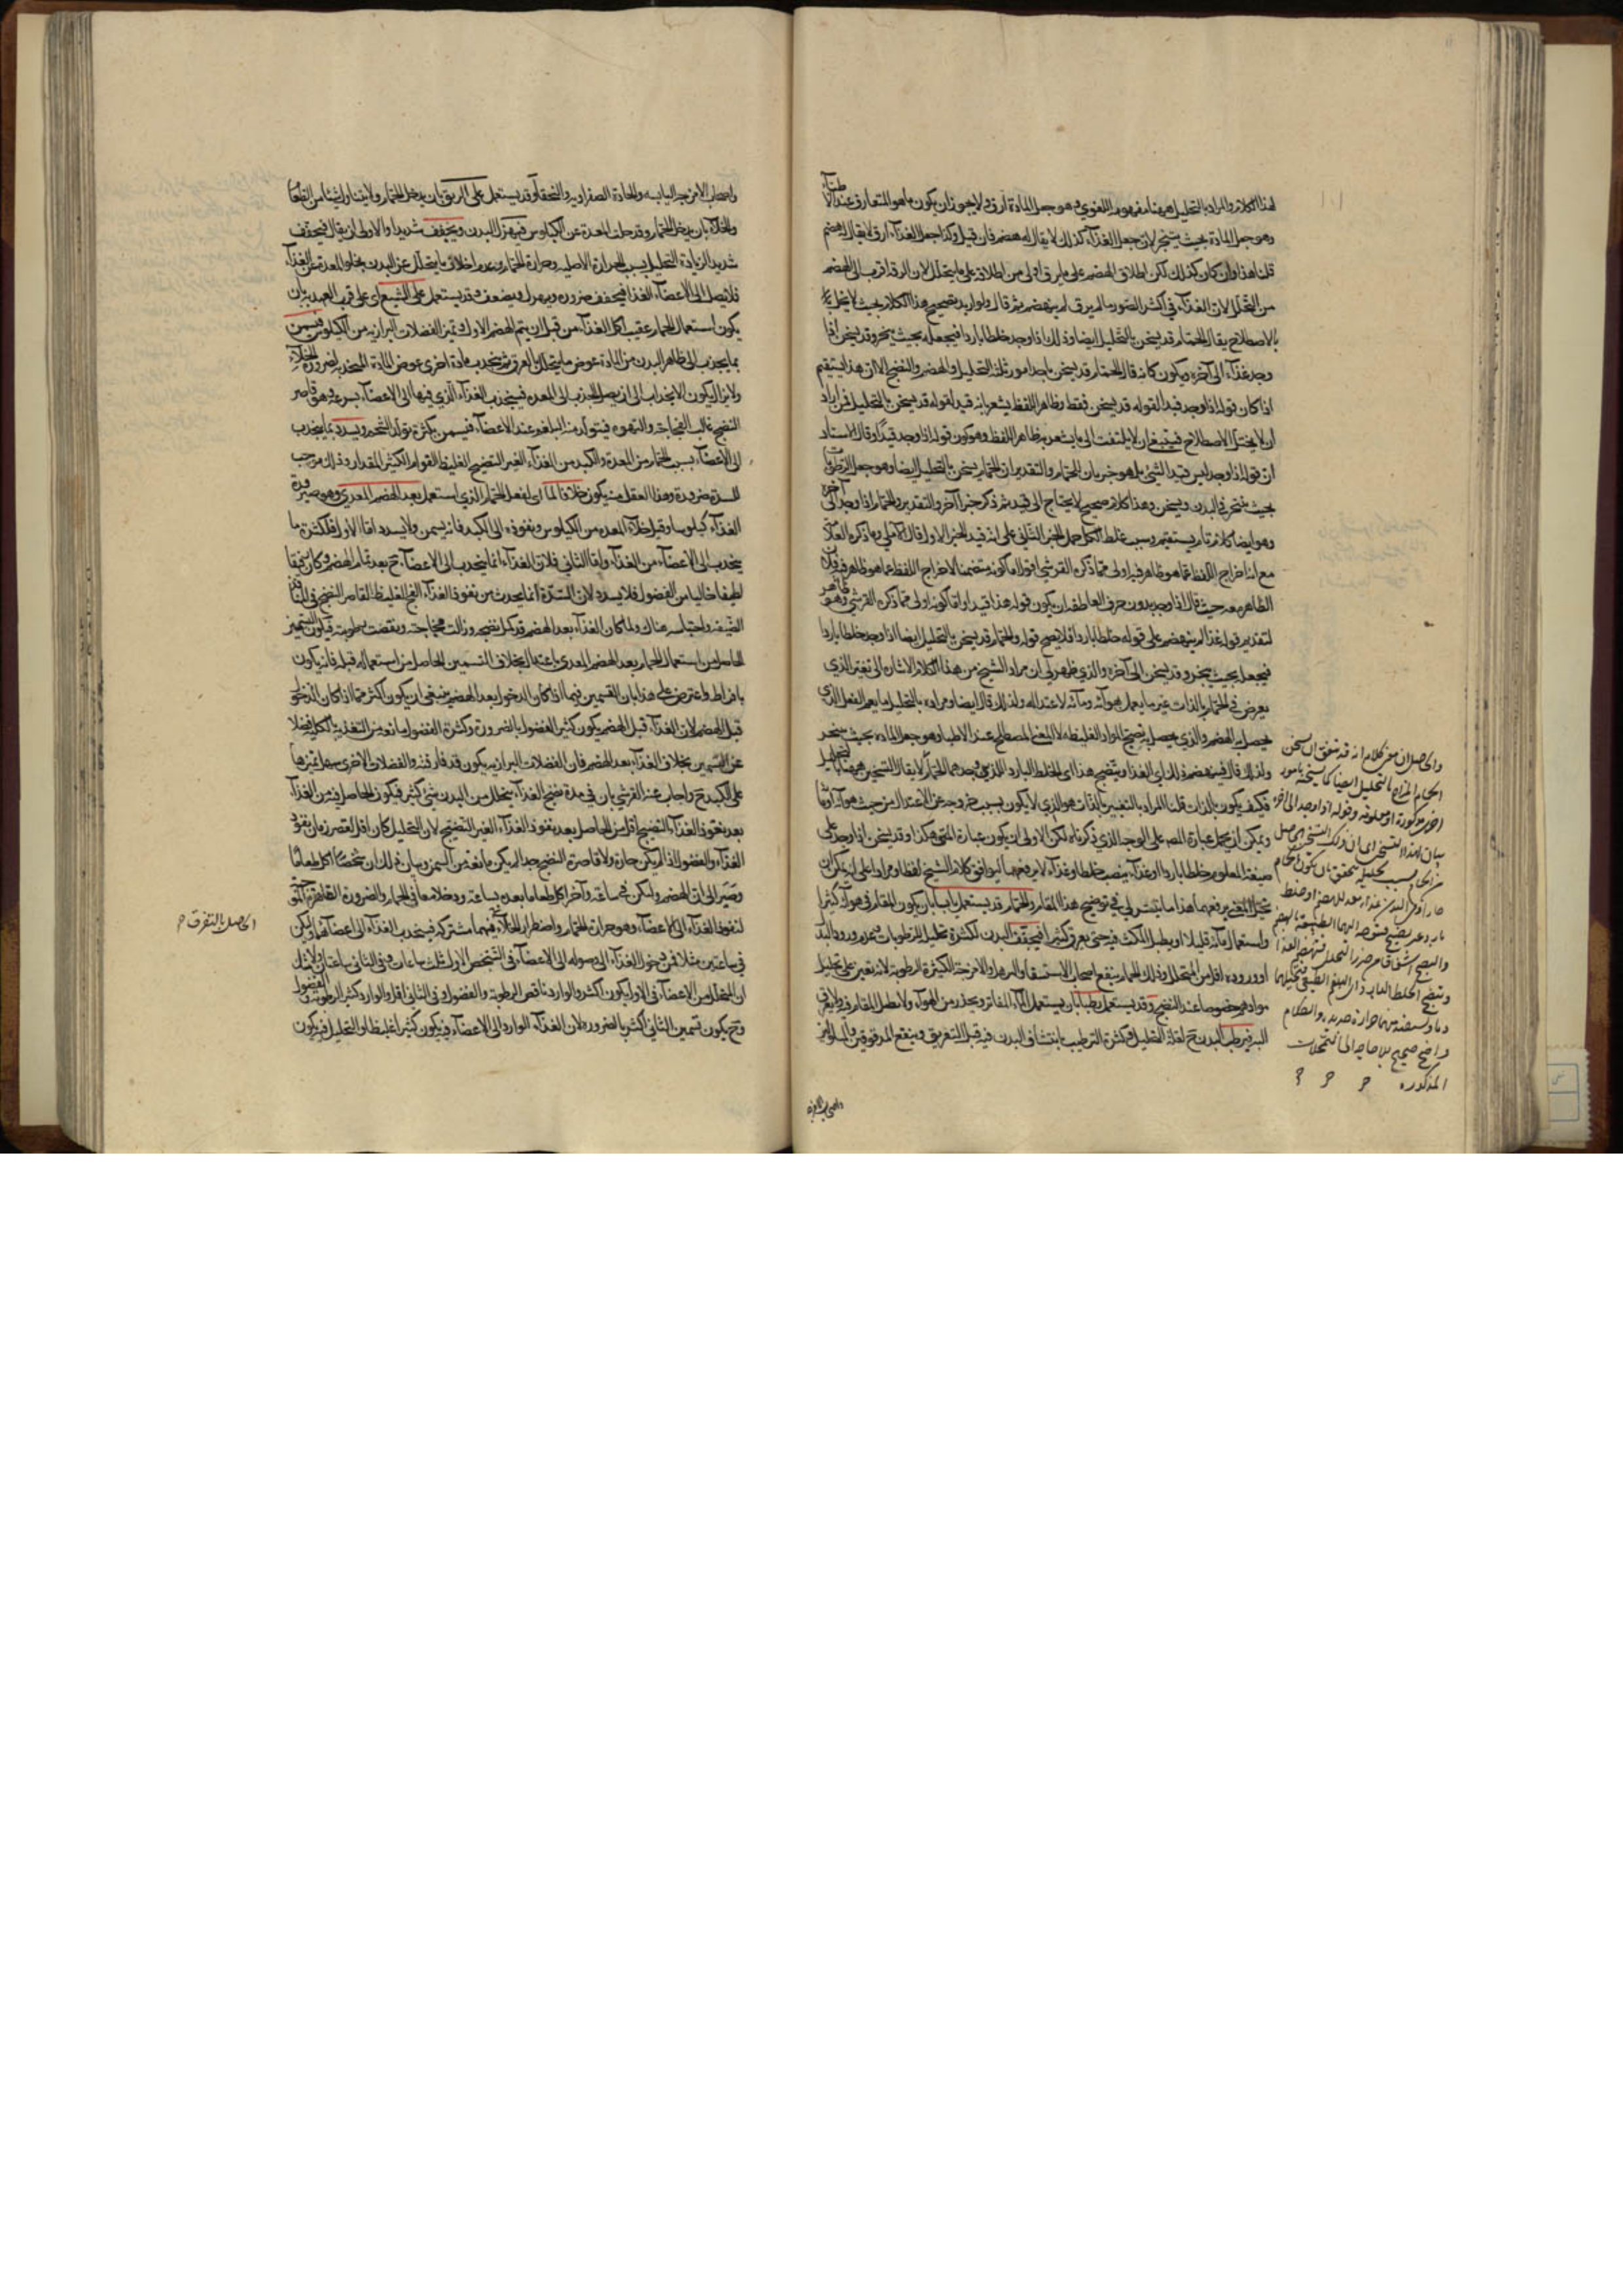 لهذا الكلام والمراد بالتحليل ههنا مفهومه اللغوي وهو جعل المادة ارق ولا يجوز ان يكون ما هو المتعارف عند الاطباء
وهو جعل المادة بحيث يتبخر لان جعل الغذاء كذلك لا يقال له هضم فان قيل وكذا جعل الغذاء ارق لا يقال له هضم
قلنا هذا وان كان كذلك لكن اطلاق الهضم على ما يرق اولى من اطلاقه على ما يتحلل لان الرقة اقرب الى الهضم
من التحلل لان الغذاء في اكثر الصور ما لم يرق لم ينهضم ثم قال ولو اريد تصحيح هذا الكلام بحيث لا يخل
بالاصطلاح يقال الحمام قد يسخن بالتحليل ايضا وذلك اذا وجد خلطا باردا فيجعله بحيث يتبخر وقد يسخن اذا
وجد غذاء الى آخره ويكون كانه قال الحمام قد يسخن باحد امور ثلثة التحليل والهضم والنضج الا ان هذا يستقيم
اذا كان قوله اذا وجد قيدا لقوله قد يسخن فقط وظاهر اللفظ يشعر بانه قيد لقوله قد يسخن بالتحليل فمن اراد
ان لا يختل الاصطلاح فينبغي ان لا يلتفت الى ما يشعر به ظاهر اللفظ وهو كون قوله اذا وجد قيدا وقال الاستاد
ان قوله اذا وجد ليس قيدا لشيء بل هو خبر بان الحمام والتقدير ان الحمام يسخن بالتحليل ايضا وهو جعل الرطوبات
بحيث يتبخر في البدن ويسخن وهذا كلام صحيح لا يحتاج الى قيد ثم ذكر خبرا آخر والتقدير والحمام اذا وجد الى آخره
وهو ايضا كلام تام مستقيم وسبب غلط الكل حمل الخبر الثاني على انه قيد الخبر الاول قال الآملي وما ذكره العلامة
مع انه اخراج اللفظ عما هو ظاهر فيه اولى مما ذكره القرشي اقول اما كونه متضمنا لاخراج اللفظ عما هو ظاهر فيه فلان
الظاهر معه حيث قال اذا وجد بدون حرف العاطف ان يكون قوله هذا قيدا واما كونه اولى مما ذكره القرشي وهو ظاهر
لتقديم قوله غذاء لم ينهضم على قوله خلطا باردا فلا يصح قوله والحمام قد يسخن بالتحليل ايضا اذا وجد خلطا باردا
فيجعله بحيث يتبخر وقد يسخن الى آخره والذي ظهر لي ان مراد الشيخ من هذا الكلام الاشارة الى تغير الذي
يعرض في الحمام بالذات غير ما يعمل هوائه ومائه لاعتداله ولذلك قال ايضا ومراده بالتحليل ما يعم الفعل الذي
يحصل به الهضم والذي يحصل به نضج المواد الغليظة لا المعنى المصطلح عند الاطباء وهو جعل المادة بحيث يتبخر
ولذلك قال فيهضم ذلك اي الغذاء وينضج هذا اي الخلط البارد اللذين وجدهما الحمام لا يقال التسخين ههنا بالتحليل
فكيف يكون بالذات قلنا المراد بالتغيير بالذات هو الذي لا يكون بسبب خروجه عن الاعتدال من حيث هوائه او مائه
ويمكن ان يحمل عبارة المص على الوجه الذي ذكرناه لكن الاولى ان يكون عبارة المتن هكذا وقد يسخن اذا وجد على
صيغة المعلوم خلطا باردا او غذاء بنصب خلطا وغذاء لا برفعهما ليوافق كلام الشيخ لفظا ومرادا على انه يمكن ان
يتحمل المتن برفعهما هذا ما تيسر لي في توضيح هذا المقام والحمام قد يستعمل يابسا بان يكون المقام في هوائه كثيرا
واستعمال مائه قليلا او يطيل المكث فيه حتى يعرق كثيرا فيجفف البدن لكثرة تحليل الرطوبات وعدم ورود البدل
او وروده اقل من المتحلل وذلك الحمام ينفع اصحاب الاستسقاء والترهل والامزجة الكثيرة الرطوبة لانه يعين على تحليل
موادهم خصوصا عند النضج وقد يستعمل رطبا بان يستعمل الماء الفاتر ويحذر من الهواء ولا يطيل المقام فيه ولا يعرق
البدن فيرطب البدن ح لقلة التحليل وكثرة الترطيب بانتشاف البدن فيه قبل التعريق وينفع المدقوقين والمسلولين
واصحاب الامزجة
والحاصل ان معنى كلامه انه قد يتفق ان يسخن
الحمام المزاج بالتحليل ايضا كما يسخنه بامور
اخر مذكورة او معلومة وقوله اذا وجد الى آخره
بيان لهذا التسخن اي ان ذلك التسخن الحاصل
من الحمام بسبب تحليله يتحقق بان يكون الحمام
والنضج
وينضج الخلط البارد اي البلغم
دما ويستفيد منهما حرارة جديدة والكلام
واضح صحيح بلا حاجة الى التمحلات
المذكورة
واصحاب الامزجة اليابسة والحادة الصفراوية والنحفاء وقد يستعمل على الريق بان يدخل الحمام ولا يتناول شيئا من الطعام
والخلاء بان يدخل الحمام وقد خلت المعدة عن الكيلوس فيهزل البدن ويجفف شديدا والاولى ان يقال فيجفف
شديدا لزيادة التحليل بسبب الحرارة الاصلية وحرارة الحمام وعدم اخلاف ما يتحلل عن البدن بخلو المعدة عن الغذاء
فلا يصل الى الاعضاء الغذاء فيجفف ضرورة ويهزل ويضعف وقد يستعمل على الشبع اي على قرب العهد به بان
يكون استعمال الحمام عقيب اكل الغذاء من قبل ان يتم الهضم الاول وتميز الفضلات البرازية من الكيلوس فيسمن
بما يجذب الى ظاهر البدن من المادة عوض ما يتحلل بالعرق ثم يجذب مادة اخرى عوض المادة المنجذبة لضرورة الخلاء
ولا يزال يكون الانجذاب الى ان يصل الجذب الى المعدة فينجذب الغذاء الذي فيها الى الاعضاء بسرعة وهو قاصر
النضج غالب الفجاجة والنهوة فيتولد منه البلغم عند الاعضاء فيسمن بكثرة تولد الشحم ويسدد بما ينجذب
الى الاعضاء بسبب الحمام من المعدة والكبد من الغذاء الغير النضيج الغليظ القوام الكثير المقدار وذلك موجب
للسدة ضرورة وهذا الفعل منه يكون خلافا لما اي لفعل الحمام الذي استعمل بعد الهضم المعدي وهو صيرورة
الغذاء كيلوسا وقبل خلاء المعدة من الكيلوس ونفوذه الى الكبد فانه يسمن ولا يسدد اما الاول فلكثرة ما
ينجذب الى الاعضاء من الغذاء واما الثاني فلان الغذاء انما ينجذب الى الاعضاء ح بعد تمام الهضم وكان رقيقا
لطيفا خاليا من الفضول فلا يسدد لان السدة انما يحدث من نفوذ الغذاء الفج الغليظ القاصر النضج في المنافذ
الضيقة واحتباسه هناك ولما كان الغذاء بعد الهضم قد كمل نضجه وزالت فجاجته ونقصت رطوبته فيكون التسمين
الحاصل من استعمال الحمام بعد الهضم المعدي باعتدال بخلاف التسمين الحاصل من استعماله قبله فانه يكون
بافراط واعترض على هذا بان القسمين فيما اذا كان الدخول بعد الهضم ينبغي ان يكون اكثر مما اذا كان الدخول
قبل الهضم لان الغذاء قبل الهضم يكون كثير الفضول بالضرورة وكثرة الفضول مانعة من التغذية بالكلية فضلا
عن التسمين بخلاف الغذاء بعد الهضم فان الفضلات البرازية يكون قد فارقته والفضلات الاخرى سهل تميزها
على الكبد ح واجاب عنه القرشي بان في مدة هضم الغذاء يتحلل من البدن شيء كثير فيكون الحاصل فيه من الغذاء
بعد نفوذ الغذاء النضيج اقل من الحاصل بعد نفوذ الغذاء الغير النضيج لان التحليل كان اقل لقصر زمان نفوذ
الغذاء والفضول اذا لم يكن حارة ولا قاصرة النضج جدا لم يكن مانعة من السمن وبيان ذلك ان شخصا اكل طعاما
وصبر الى ان انهضم وليكن في ساعة وآخر اكل طعاما بعده بساعة ودخلا معا في الحمام والضرورة القاهرة
لنفوذ الغذاء الى الاعضاء وهو حرارة الحمام واضطرار الخلاء فيهما مشتركة فينجذب الغذاء الى اعضائهما وليكن
في ساعتين مثلا فمن دخول الغذاء الى وصوله الى الاعضاء في الشخص الاول ثلث ساعات وفي الثاني ساعتان ولا شك
ان المتحلل من الاعضاء في الاول يكون اكثر والوارد ناقص الرطوبة والفضول وفي الثاني اقل والوارد كثير الرطوبة والفضول
وح يكون تسمين الثاني اكثر بالضرورة لان الغذاء الوارد الى الاعضاء فيه يكون كثيرا غليظا والتحليل فيه يكون
الحاصل بالتفرق